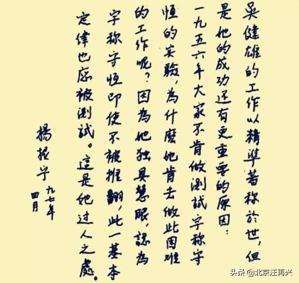 吳健雄的工作以精準著称於世,但
是他的成功还有更重要的原因:
一九五六年大家不肯做測試宇称守
恒的实驗,為什麼他肯去做此困难
的工作呢?因為他独具慧眼,認為
宇称守恒即使不被推翻,此一基本
定律也應被測試。這是他过人之處。
楊振宁
九七年
四月
头条 @北京汪再兴